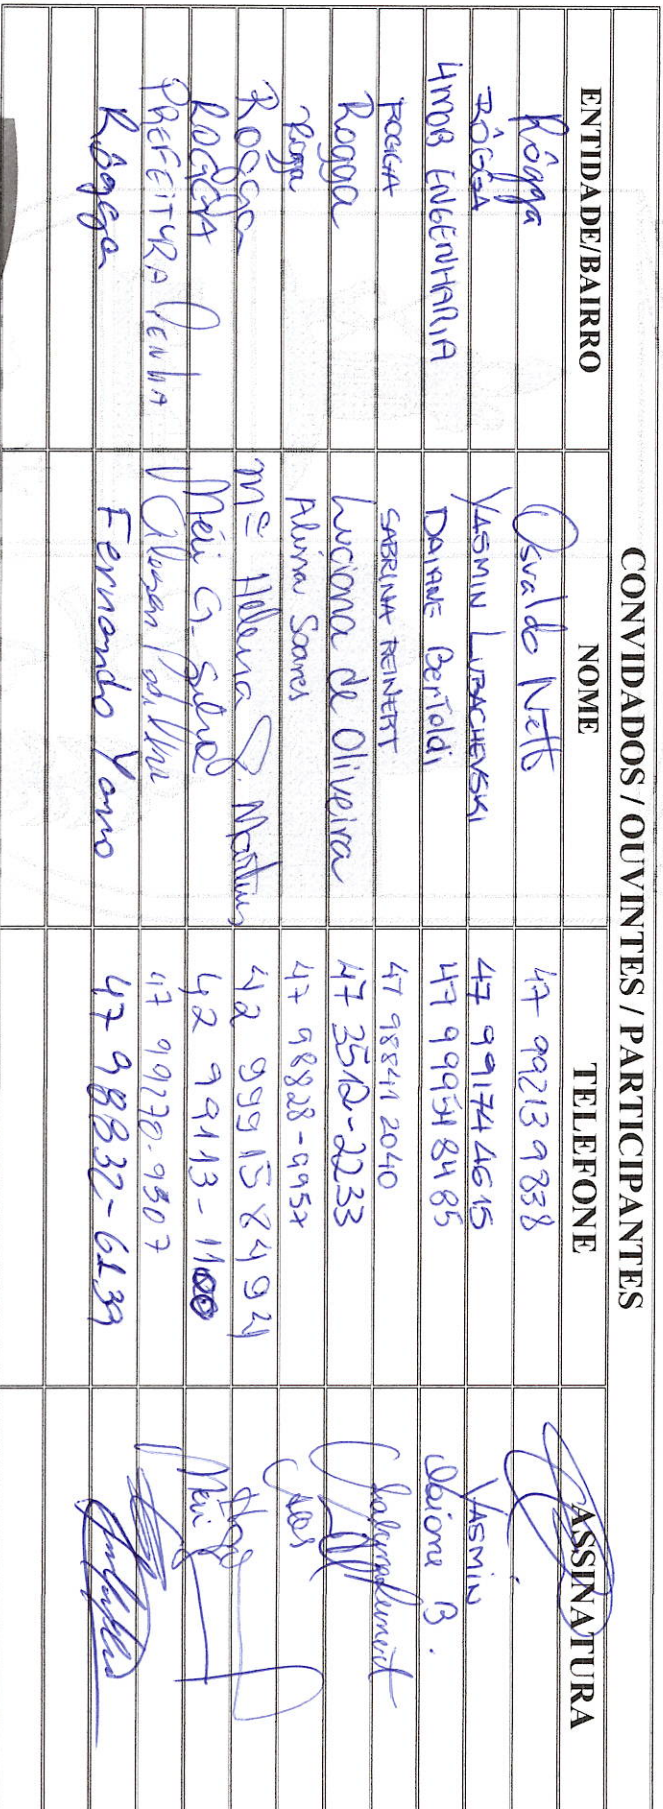 CONVIDADOS / OUVINTES / PARTICIPANTES
ENTIDADE/BAIRRO NOME TELEFONE ASSINATURA
Rôgga Osvaldo Netto 47 992139838
RÔGGA YASMIN LUBACHEVSKI 47 991744615 YASMIN
4MOB ENGENHARIA DAIANE Bertoldi 47 999548485 Daiane B.
ROGGA SABRINA REINERT 47 98841 2040
Rogga Luciana de Oliveira 47 3512-2233
Rogga Alvina Soares 47 98828-9957
Rogga Mª Helena S. Martins 42 999158492
ROGGA Neii G. Silva 42 99113-1100 Neii
PREFEITURA PENHA 47 99270.9307
Rôgga Fernando Yano 47 98832-6139